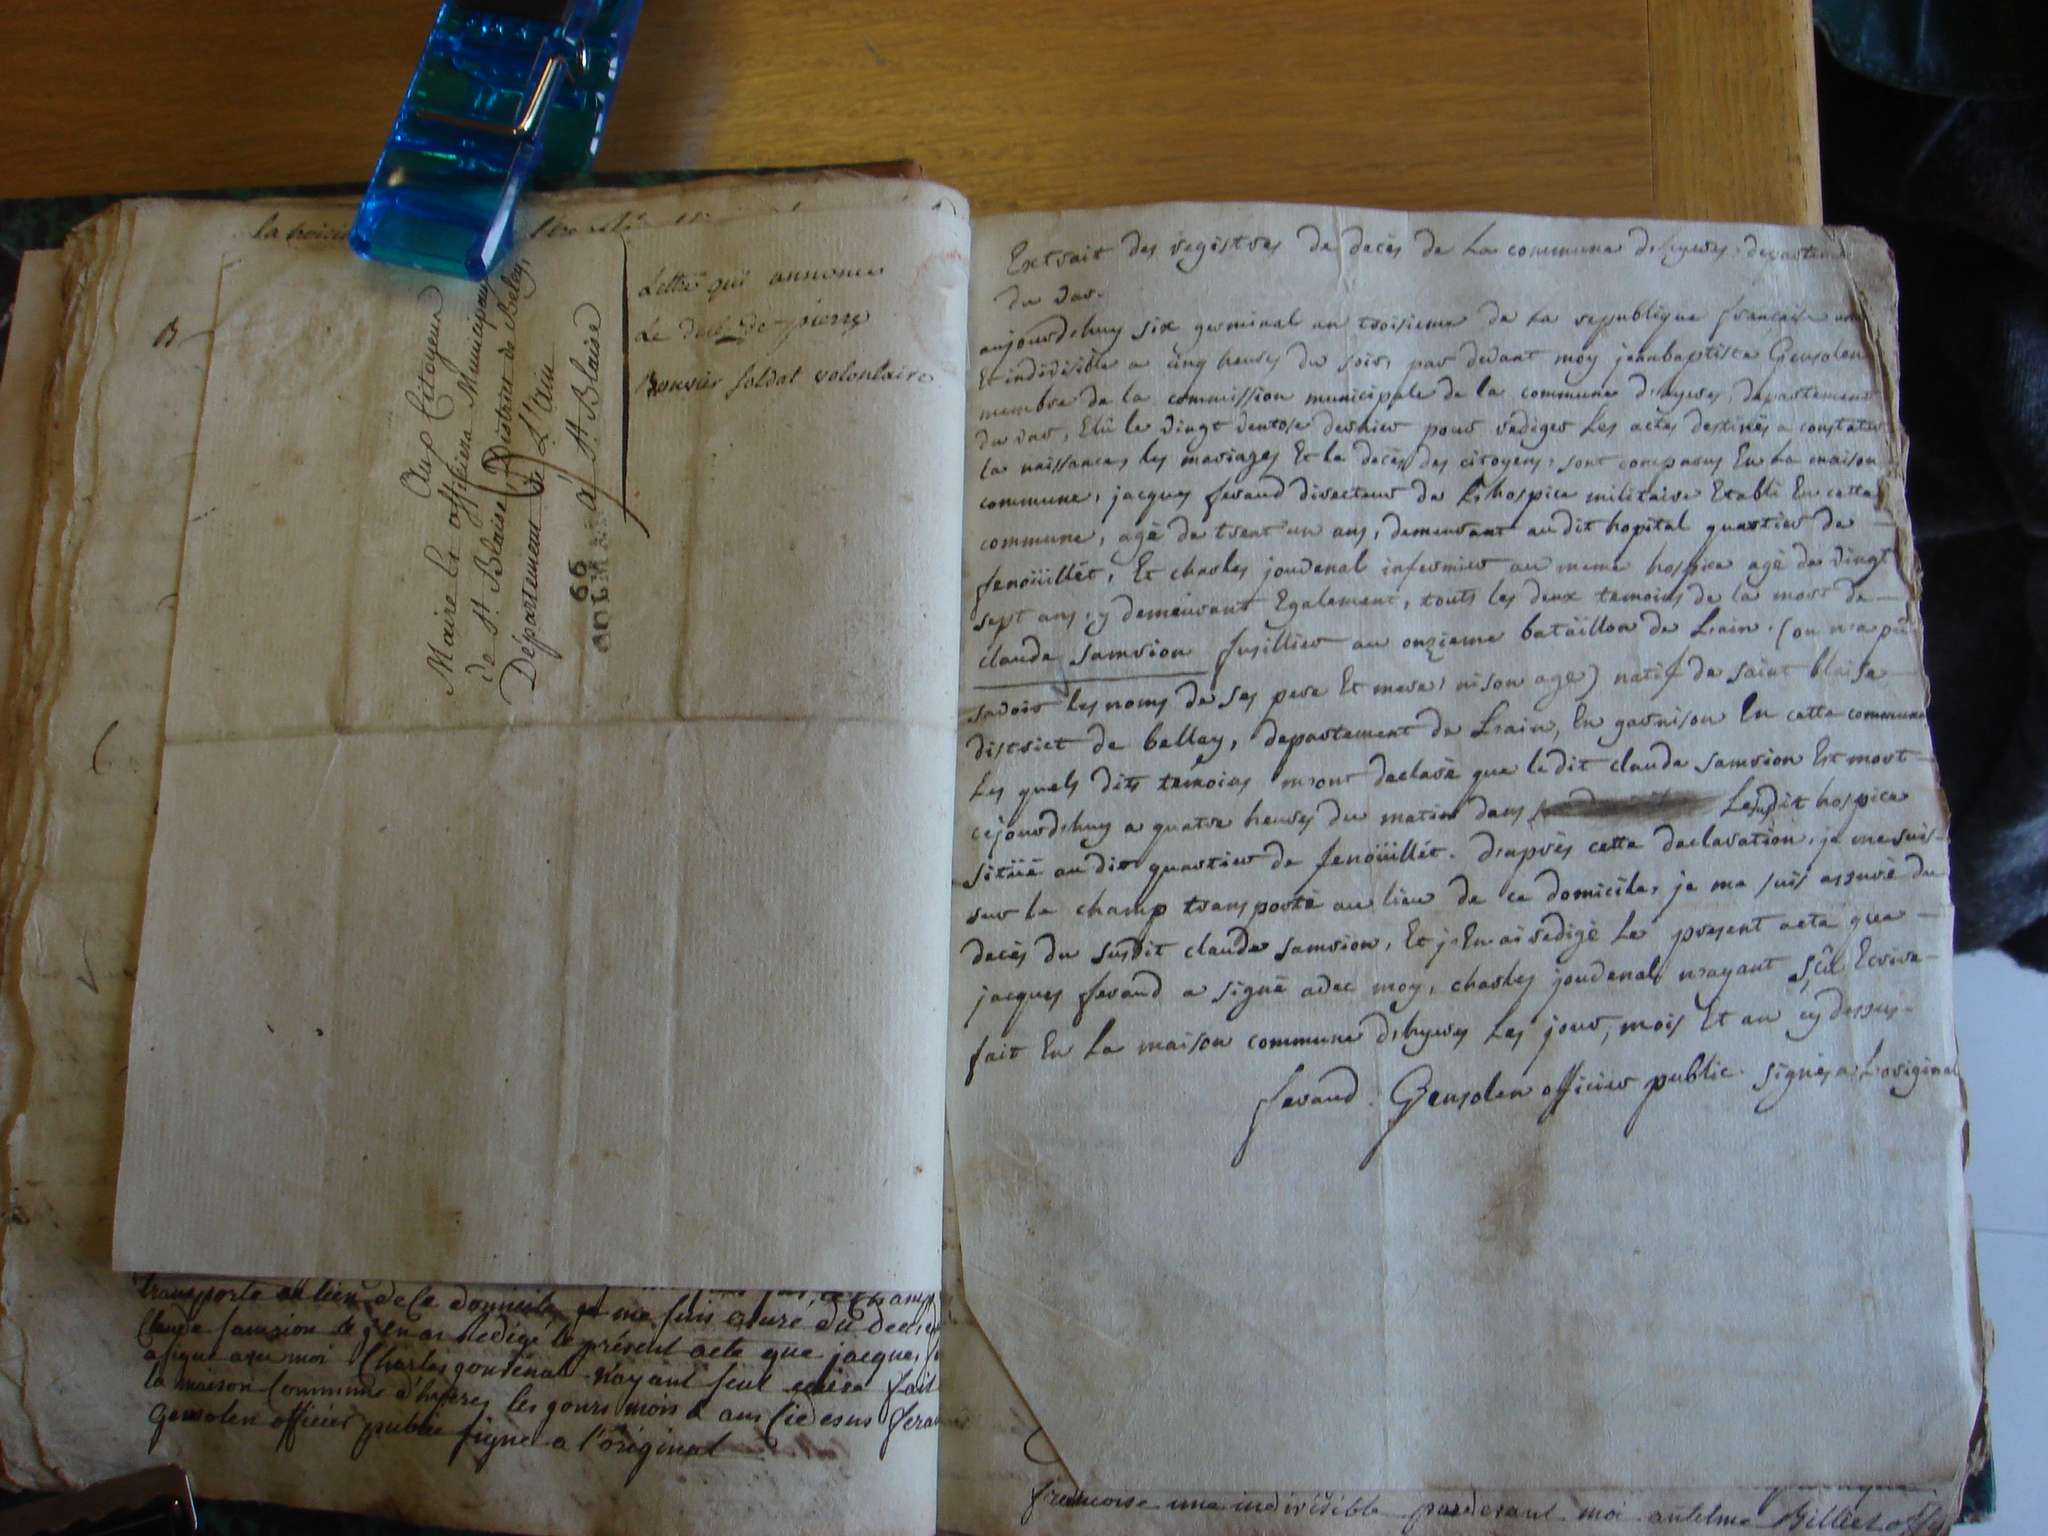 la
Aux Citoyens
Maire & officiers Municipaux
de St. Blaise District de Beley,
Département de L'Ain
á St Blaise
66
COLMAR
Lettre qui annonce
Le de pierre
Bouvier soldat volontaire
B
transporte au lieu de Ce domicile je me suis assuré du deces
Claude samvion & j'en ai redigé le présent acte que jacques
a signé avec moi Charles goudenal n'ayant seut ecrire fait
la maison Commune d'hyeres les jours mois & ans ci desus fera
Gensolen officier public signer a l'original
Extrait des registres de decès de La commune d'hyeres, departem
du var.
aujourd'huy six germinal an troisieme de La republique francaise une
Et indivisible a cinq heures du soir, par devant moy jeanbaptiste Gensolen
membre de la commission municipale de la commune d'hyeres, departement
du var, Elû le vingt ventose dernier pour rediger Les actes destinés a constater
la naissance, les mariages Et le decès des citoyens, sont comparus En La maison
commune, jacques feraud directeur de L'hospice militaire Etabli En cette
commune, agé de trent'un ans, demeurant au dit hopital quartier de
fenoüillét, Et charles joudenal infirmier au meme hospice agé de vingt
sept ans, y demeurant Egalement, touts les deux temoins de la mort de
claude samvion fusillier au onzieme bataïllon de L'ain. (on n'a pû
savoir Les noms de ses pere Et mere, ni son age) natif de saint blaise
district de belley, departement de L'ain, En garnison En cette commune
Les quels dits temoins m'ont declaré que le dit claude samvion Est mort
cejourd'huy a quatre heures du matin dans Lesusdit hospice
sitüé au dit quartier de fenoüillét. d'après cette declaration, je me suis
sur le champ transporté au lieu de ce domicile, je me suis assuré du
decès du susdit claude samvion, Et j'En ai redigé Le present acte que
jacques feraud a signé avec moy, charles joudenal n'ayant sçû Ecrire
fait En La maison commune d'hyeres Les jour, mois Et an cy dessus.
feraud. Gensolen officier public. signés a L'original
francoise une indivisible pardevant moi antelme Billiet